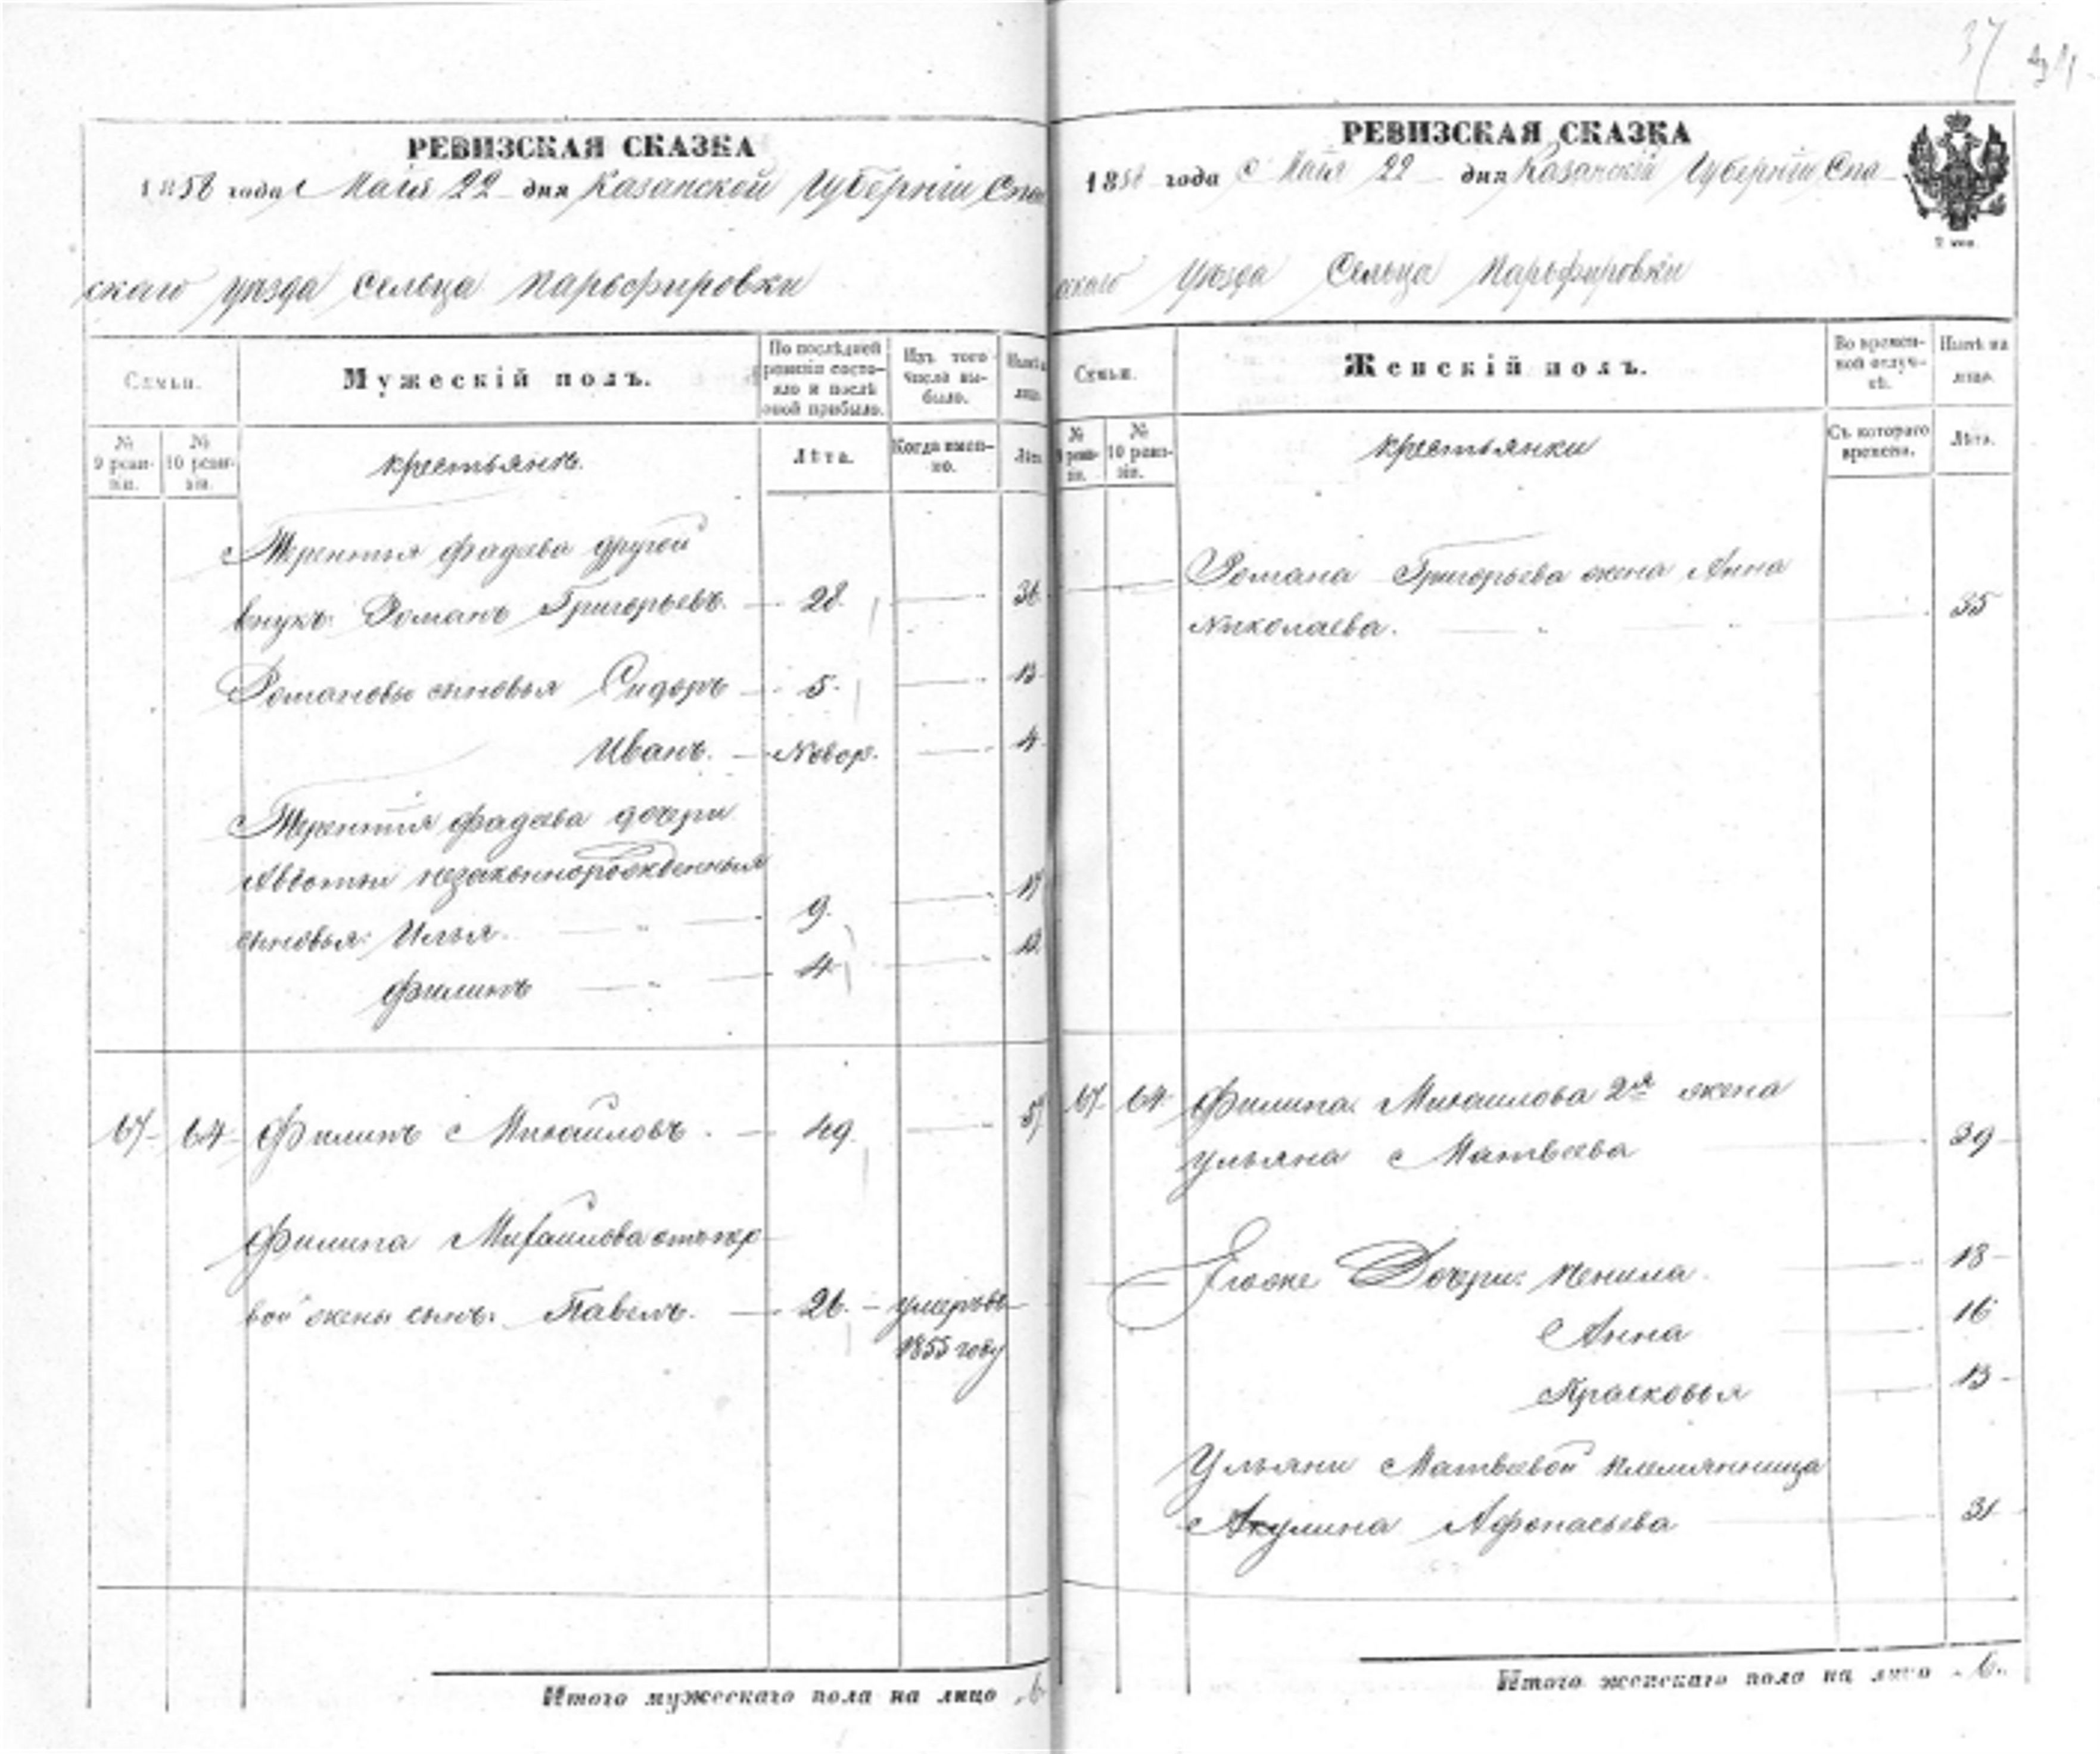 37
РЕВИЗСКАЯ СКАЗКА
1858 года Маія 22 дня Казанской Губерніи Спа
скаго уѣзда Сельца Парьфировки
Семьи.
Мужескій полъ.
По послѣдней ревизіи состояло и послѣ оной прибыло.
Изъ того числа выбыло.
Нынѣ на лицо.
№ 9 ревизіи.
№ 10 ревизіи.
крестьянъ.
Лѣта.
Когда именно.
Лѣта.
Терентья Фадѣева другой
внукъ: Романъ Григорьевъ. — 28. — 36
Романовы сыновья Сидоръ — 5. — 13
Иванъ. — Новор. — 4
Терентия Фадѣева дочери
Авдотьи незаконнорожденныя
сыновья: Илья. — 9. — 17
Филипъ — 4 — 12
67 — 64 — Филипъ Михаиловъ. — 49. — 57
Филипа Михаилова отъ пер
вой жены сынъ: Павелъ. — 26. — умеръ въ
1855 году
Итого мужескаго пола на лицо 6
РЕВИЗСКАЯ СКАЗКА
1858 года Маія 22 дня Казанской Губерніи Спа
скаго Уѣзда Сельца Парьфировки
2 коп.
Семьи.
Женскій полъ.
Во временной отлучкѣ.
Нынѣ на лицо.
№ 9 ревизіи.
№ 10 ревизіи.
крестьянки
Съ котораго времени.
Лѣта.
Романа Григорьева жена Анна
Николаева. — 35
67 64 Филипа Михаилова 2я жена
Ульяна Матвѣева — 39
Егоже Дочери: Ненила — 18
Анна — 16
Прасковья — 13
Ульяны Матвѣевой племянница
Акулина Афонасьева — 31
Итого женскаго пола на лицо 6.